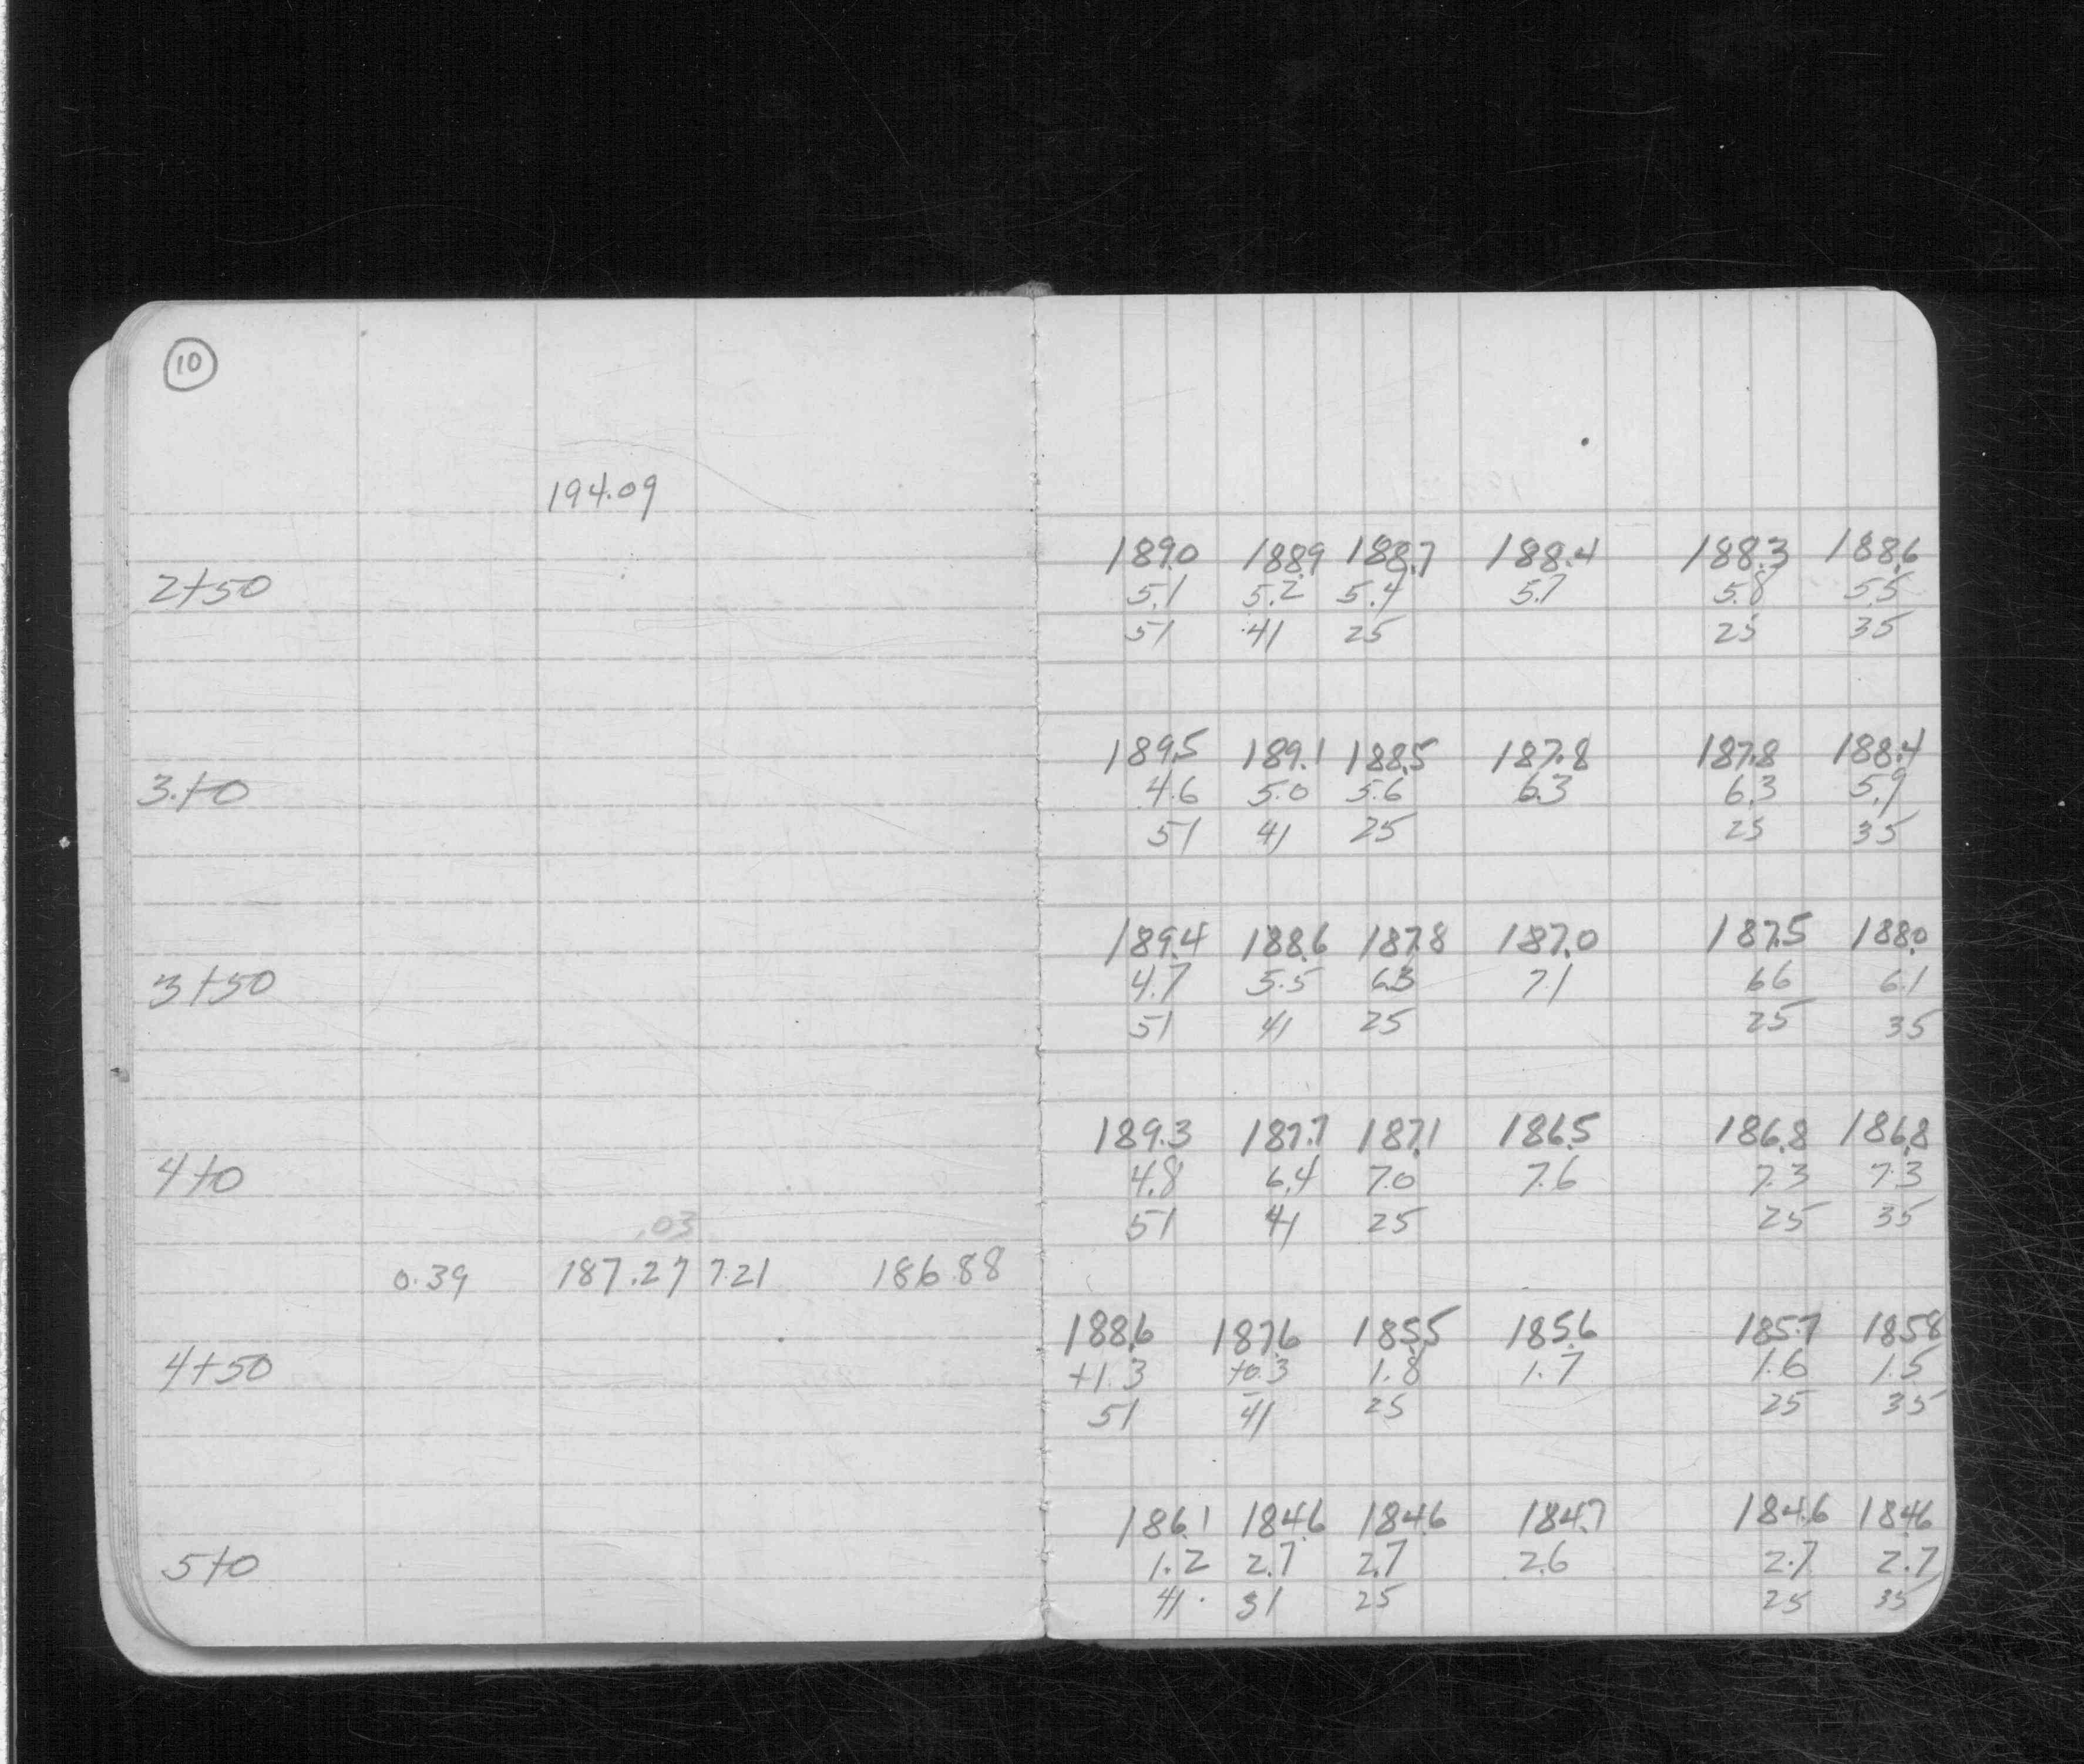 10
194.09
189.0 188.9 188.7 188.4 188.3 188.6
2+50 5.1 5.2 5.4 5.7 5.8 5.5
51 41 25 25 35
189.5 189.1 188.5 187.8 187.8 188.4
3+0 4.6 5.0 5.6 6.3 6.3 5.9
51 41 25 25 35
189.4 188.6 187.8 187.0 187.5 188.0
3+50 4.7 5.5 6.3 7.1 6.6 6.1
51 41 25 25 35
189.3 187.7 187.1 186.5 186.8 186.8
4+0 4.8 6.4 7.0 7.6 7.3 7.3
.03 51 41 25 25 35
0.39 187.27 7.21 186.88
188.6 187.6 185.5 185.6 185.7 185.8
4+50 +1.3 +0.3 1.8 1.7 1.6 1.5
51 41 25 25 35
186.1 184.6 184.6 184.7 184.6 184.6
5+0 1.2 2.7 2.7 2.6 2.7 2.7
41 31 25 25 35